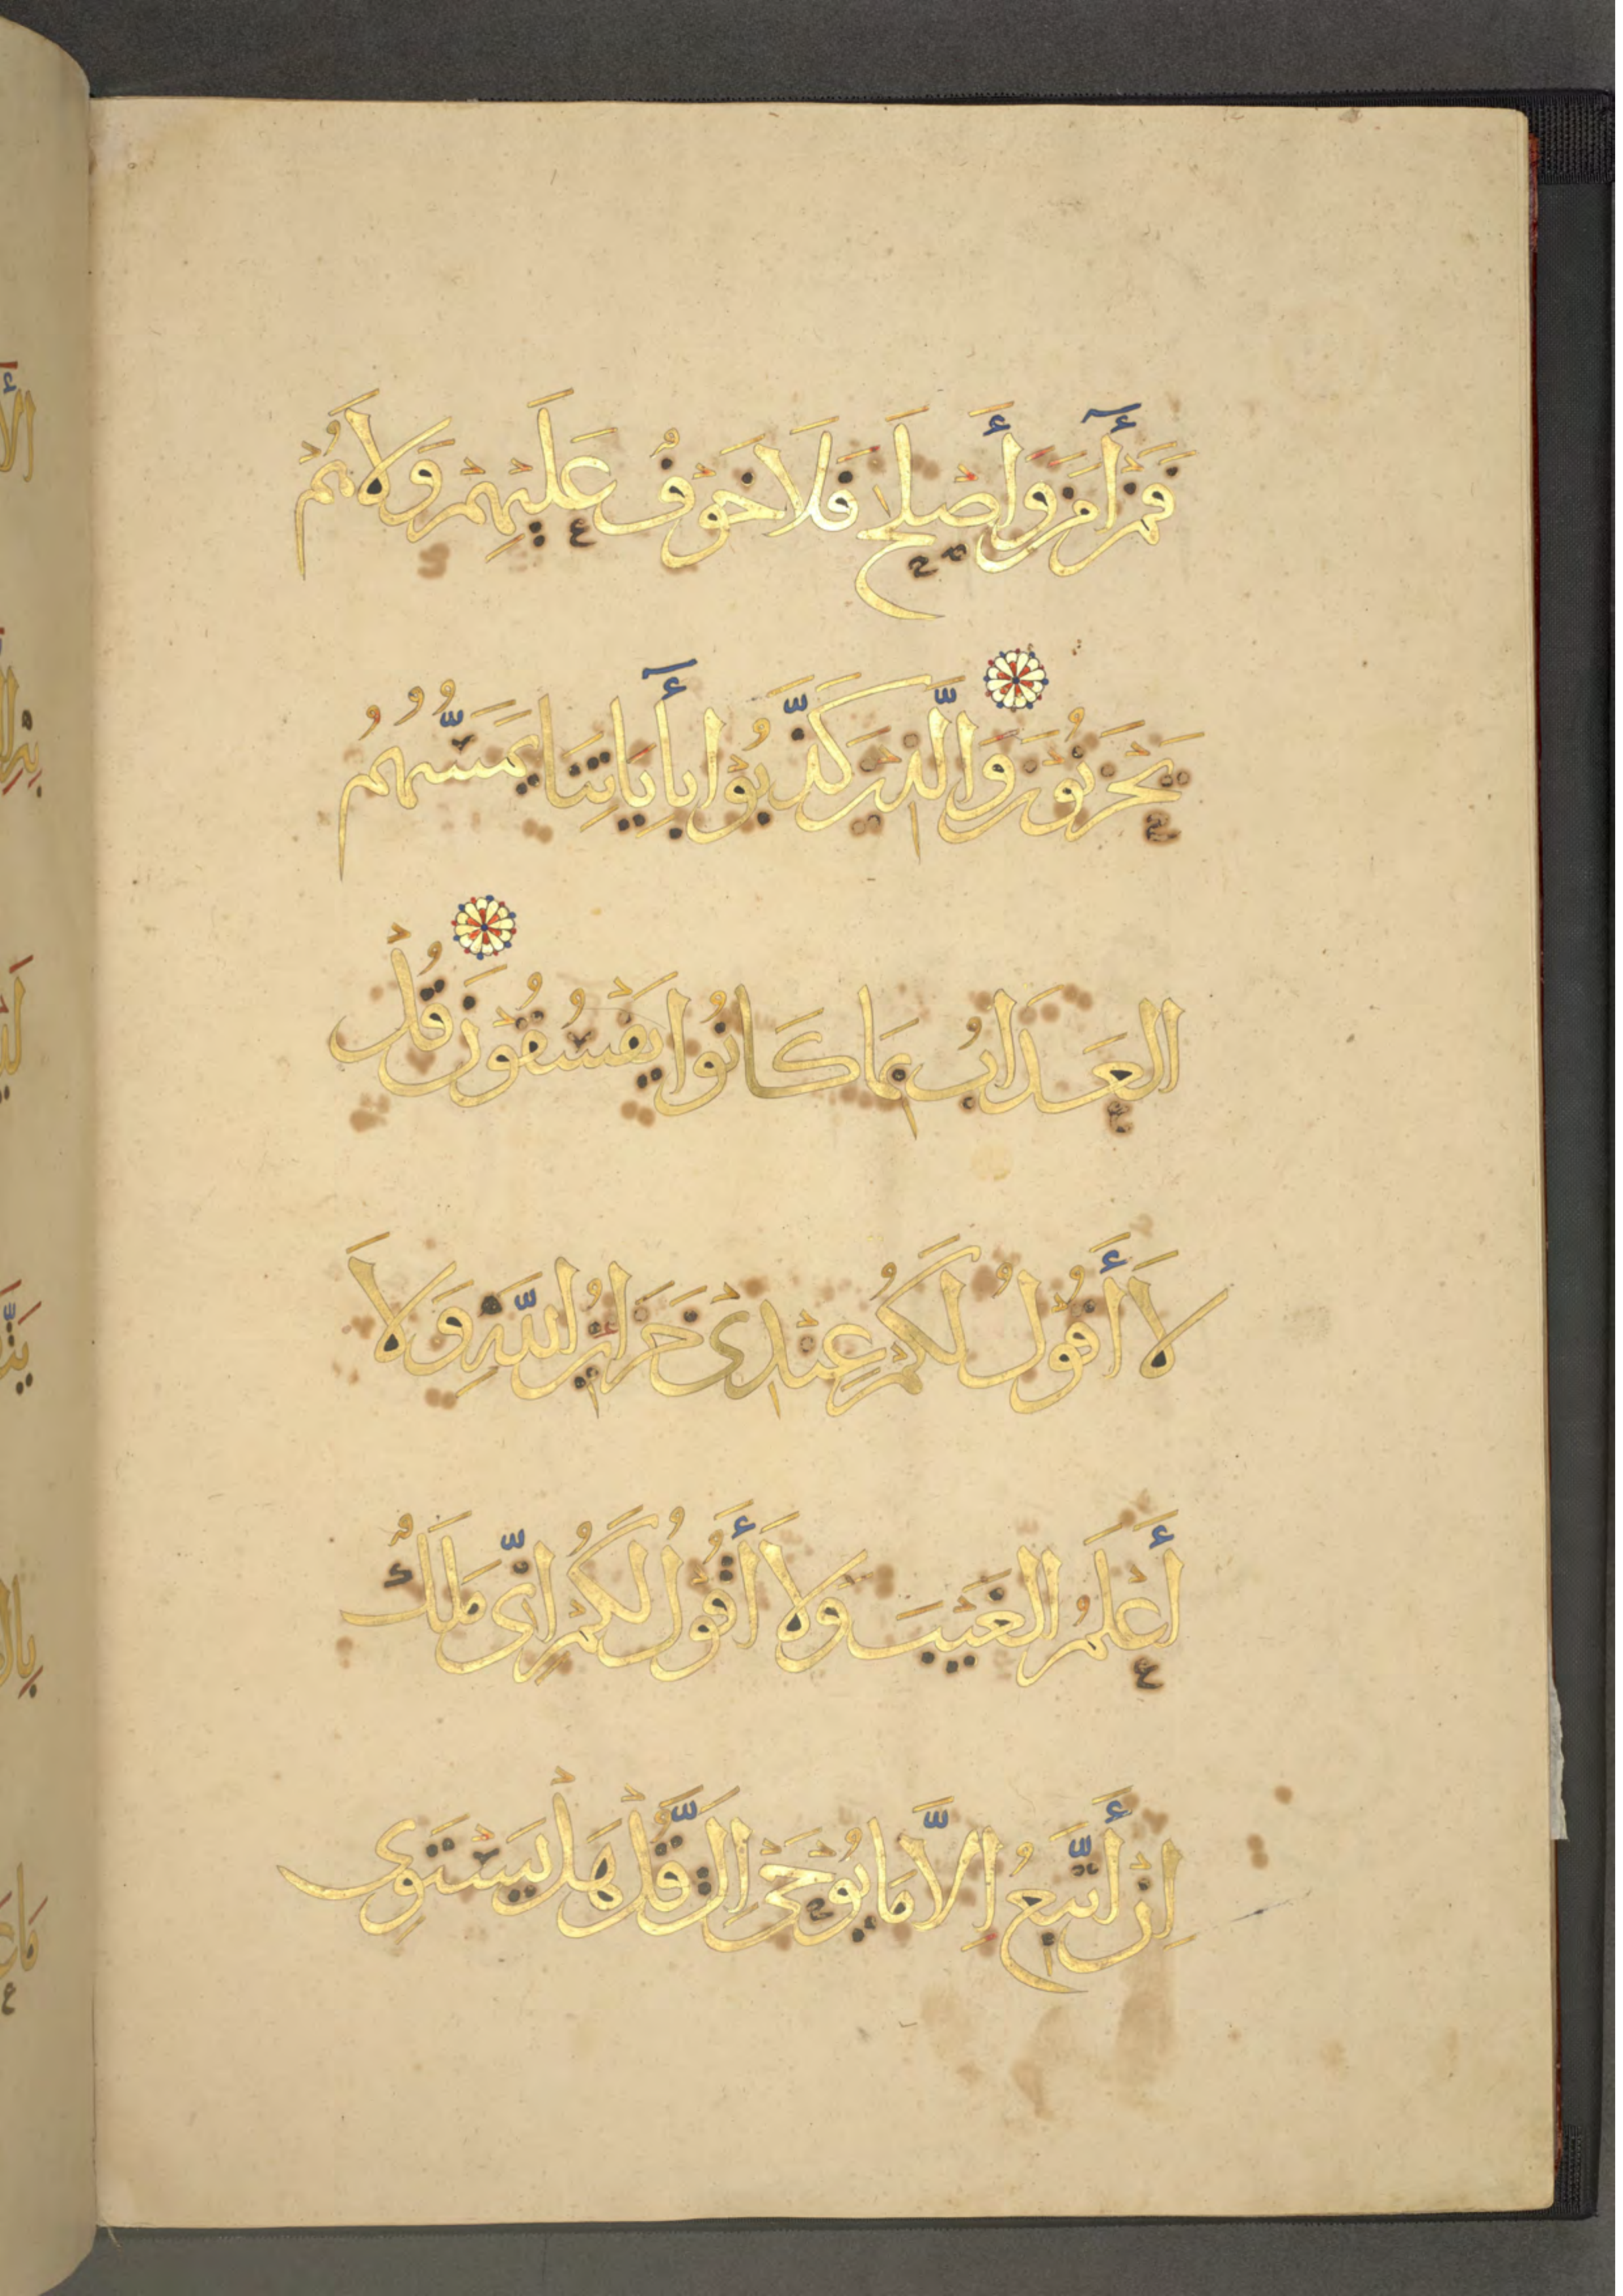 فَمَنْ أٓمَنَ وَأَصْلَحَ فَلَا خَوْفٌ عَلَيْهِمْ وَلَا هُمْ
يَحْزَنُونَ وَالَّذِينَ كَذَّبُوا بِأٓيَاتِنَا يَمَسُّهُمُ
الْعَذَابُ بِمَا كَانُوا يَفْسُقُونَ قُلْ
لَا أَقُولُ لَكُمْ عِنْدِى خَزَائِنُ اللَّهِ وَلَا
أَعْلَمُ الْغَيْبَ وَلَا أَقُولُ لَكُمْ إِنِّى مَلَكٌ
إِنْ أَتَّبِعُ إِلَّا مَا يُوحَىٰ إِلَىَّ قُلْ هَلْ يَسْتَوِى